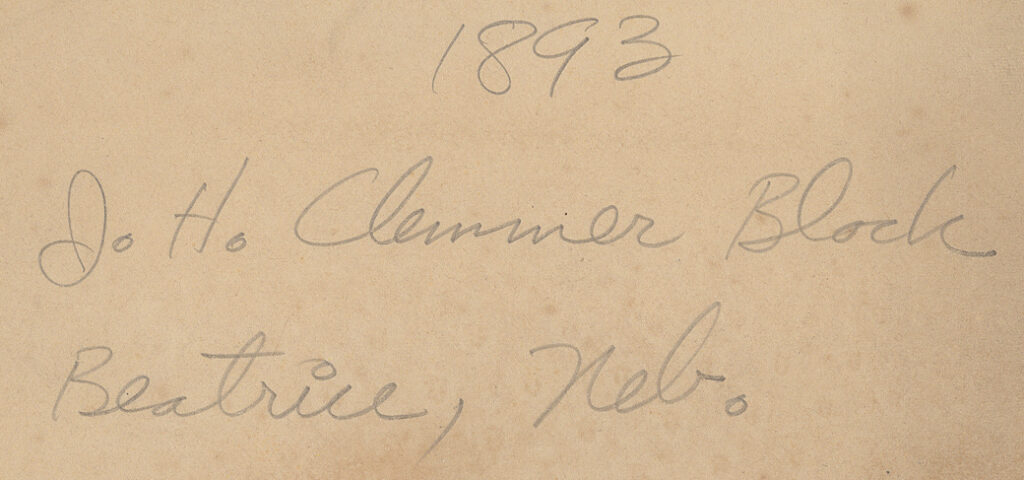 1893
J. H. Clemmer Block
Beatrice, Neb.